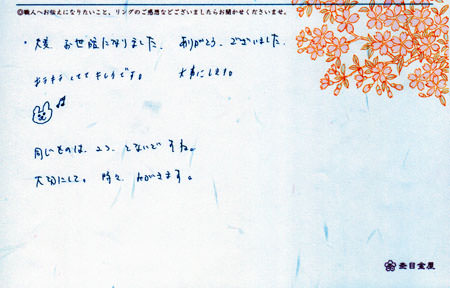 ◎職人へお伝えになりたいこと、リングのご感想などございましたらお聞かせくださいませ。
・大変 お世話になりました。 ありがとう、ございました。
キラキラ してて キレイです。 大事にします。
同じものは、2つ とないですね。
大切にして、時々 みがきます。
杢目金屋